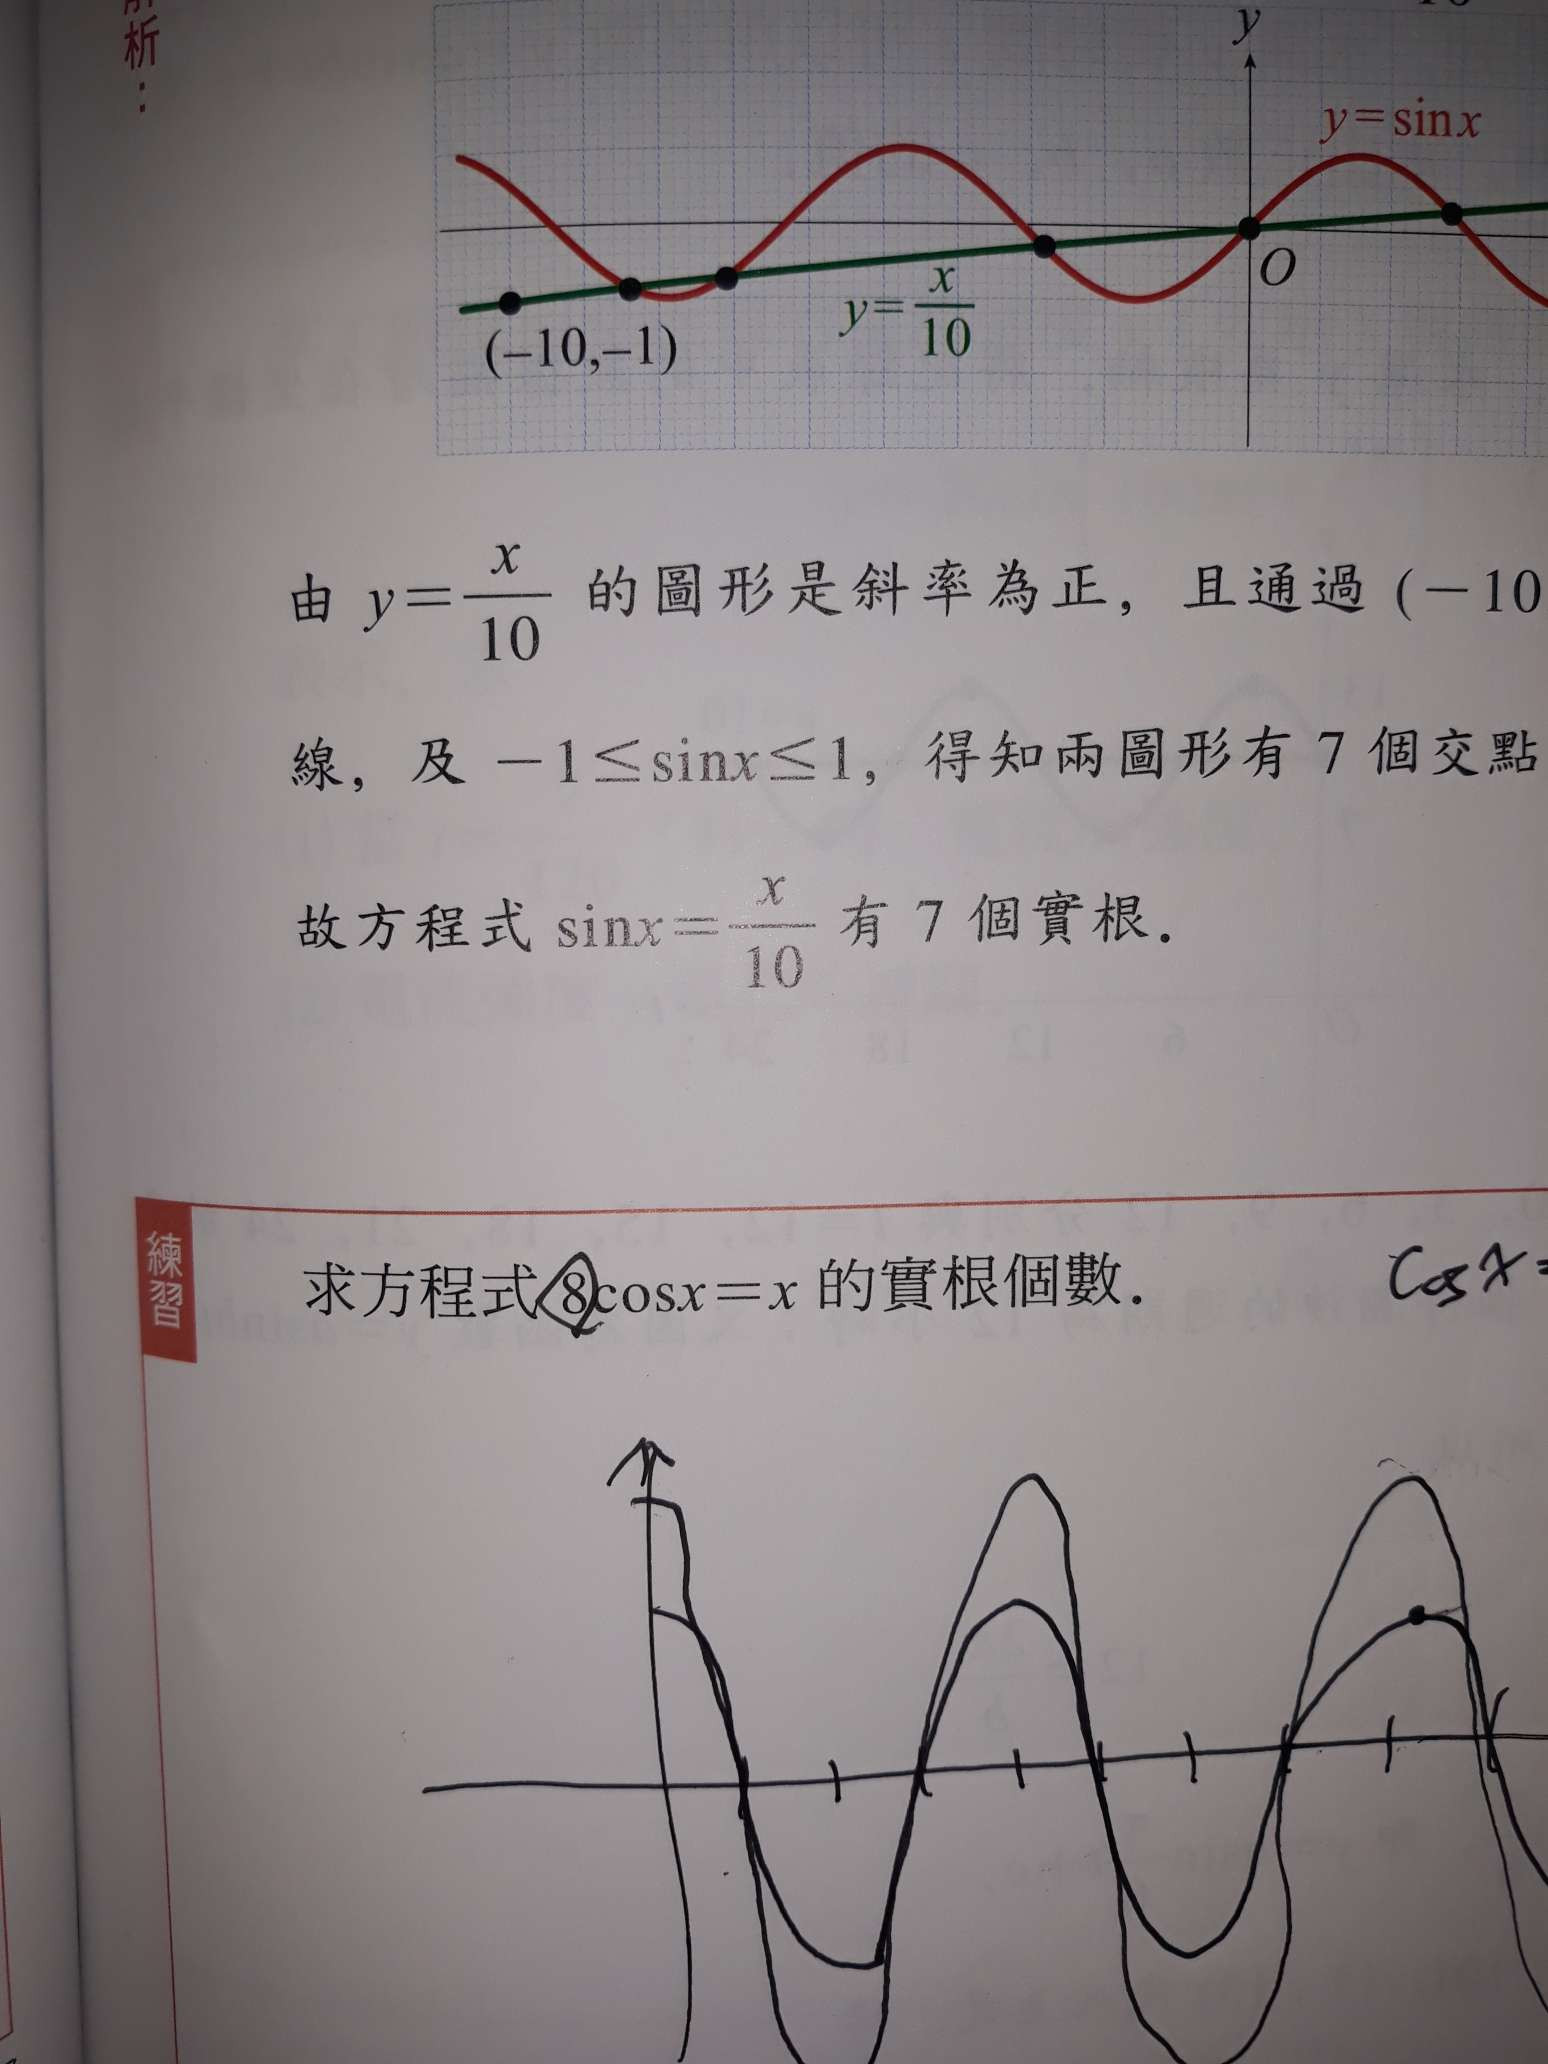 析：
y
y=sinx
O
y=x/10
(–10,–1)
由 y=x/10 的圖形是斜率為正，且通過 (－10
線，及 －1≤sinx≤1，得知兩圖形有 7 個交點
故方程式 sinx=x/10 有 7 個實根．
練習
求方程式 8cosx=x 的實根個數．
cosx=